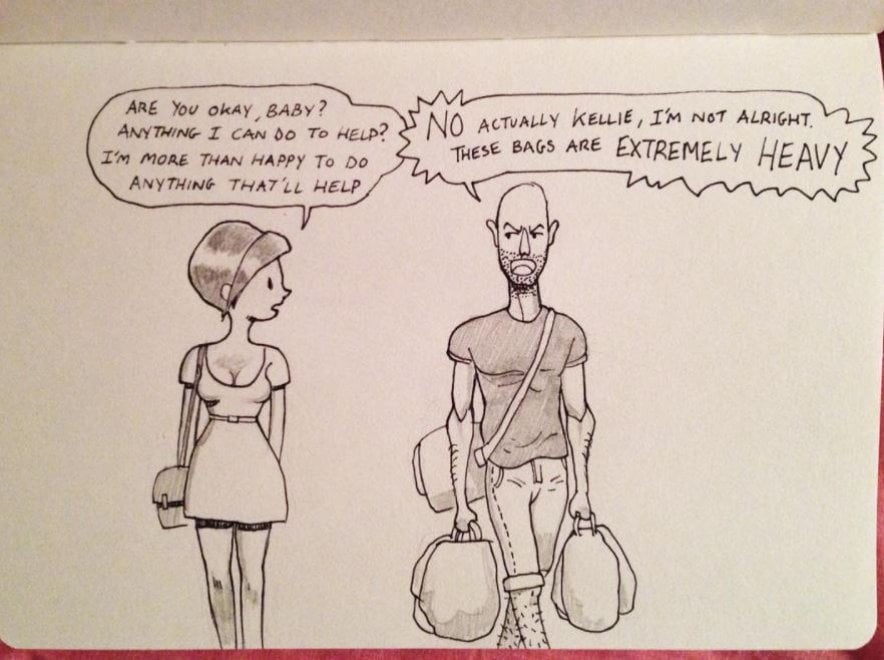 ARE YOU OKAY, BABY?
ANYTHING I CAN DO TO HELP?
I'M MORE THAN HAPPY TO DO
ANYTHING THAT'LL HELP
NO ACTUALLY KELLIE, I'M NOT ALRIGHT.
THESE BAGS ARE EXTREMELY HEAVY